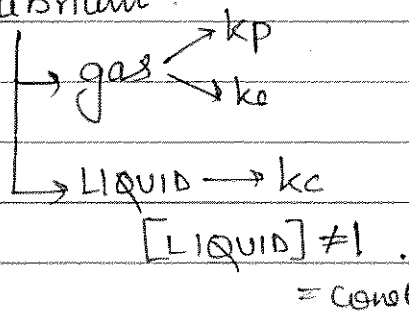 kp
gas
kc
LIQUID → kc
[LIQUID] ≠ 1 .
= const